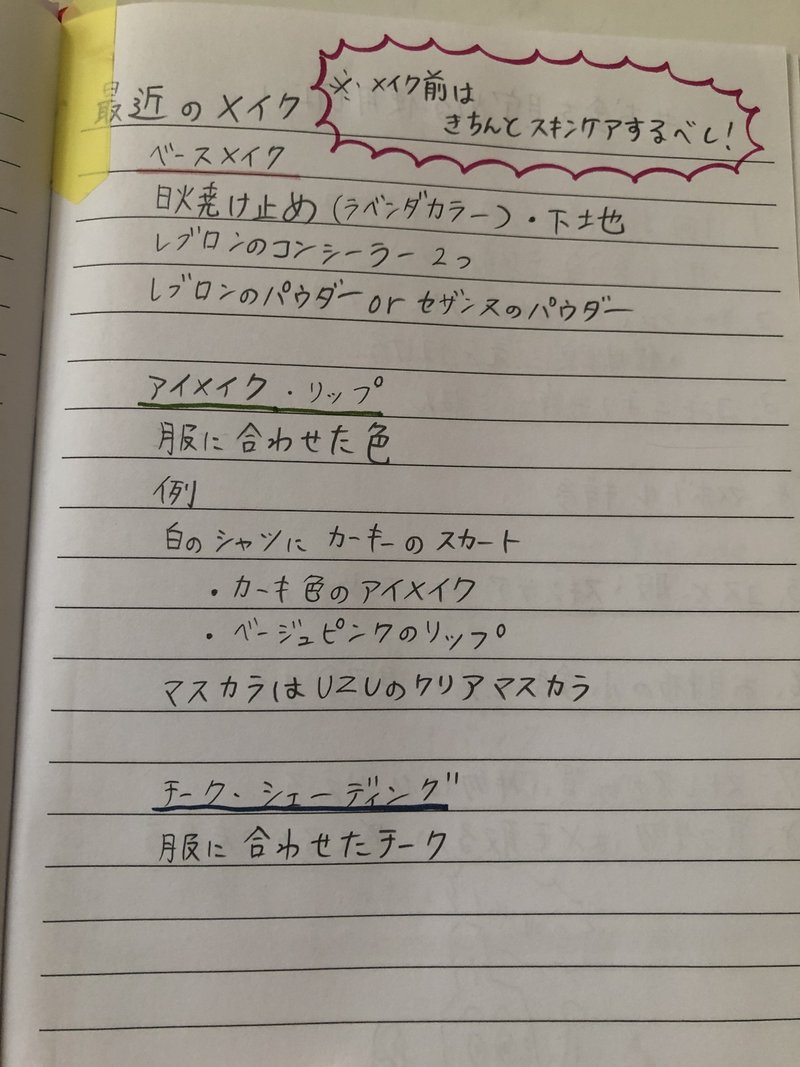 最近のメイク
※・メイク前は
きちんとスキンケアするべし!
ベースメイク
日焼け止め(ラベンダカラー)・下土也
レブロンのコンシーラー2つ
レブロンのパウダーorセザンヌのパウダー
アイメイク・リップ
服に合わせた色
例
白のシャツにカーキーのスカート
・カーキ色のアイメイク
・ベージュピンクのリップ
マスカラはUZUのクリアマスカラ
チーク・シェーディング
服に合わせたチーク